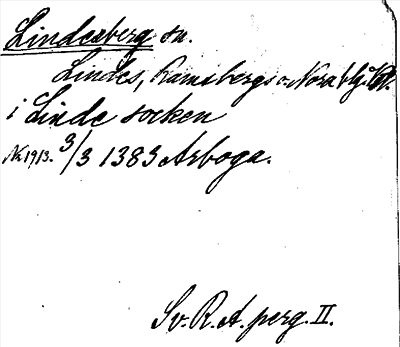 Lindesberg sn.
Lindes, Ramsbergs o. Nora blg. Vstm.
i Linde socken
Nr 1913. 3/3 1383 Arboga.
Sv. R. A. perg. II.